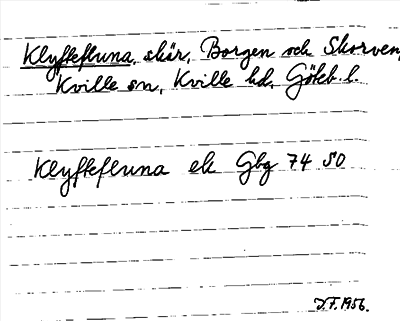 Klyftefluna, skär, Borgen och Skorven,
Kville sn, Kville hd, Göteb. l.
Klyftefluna ek Gbg 74 SO
D.F. 1956.